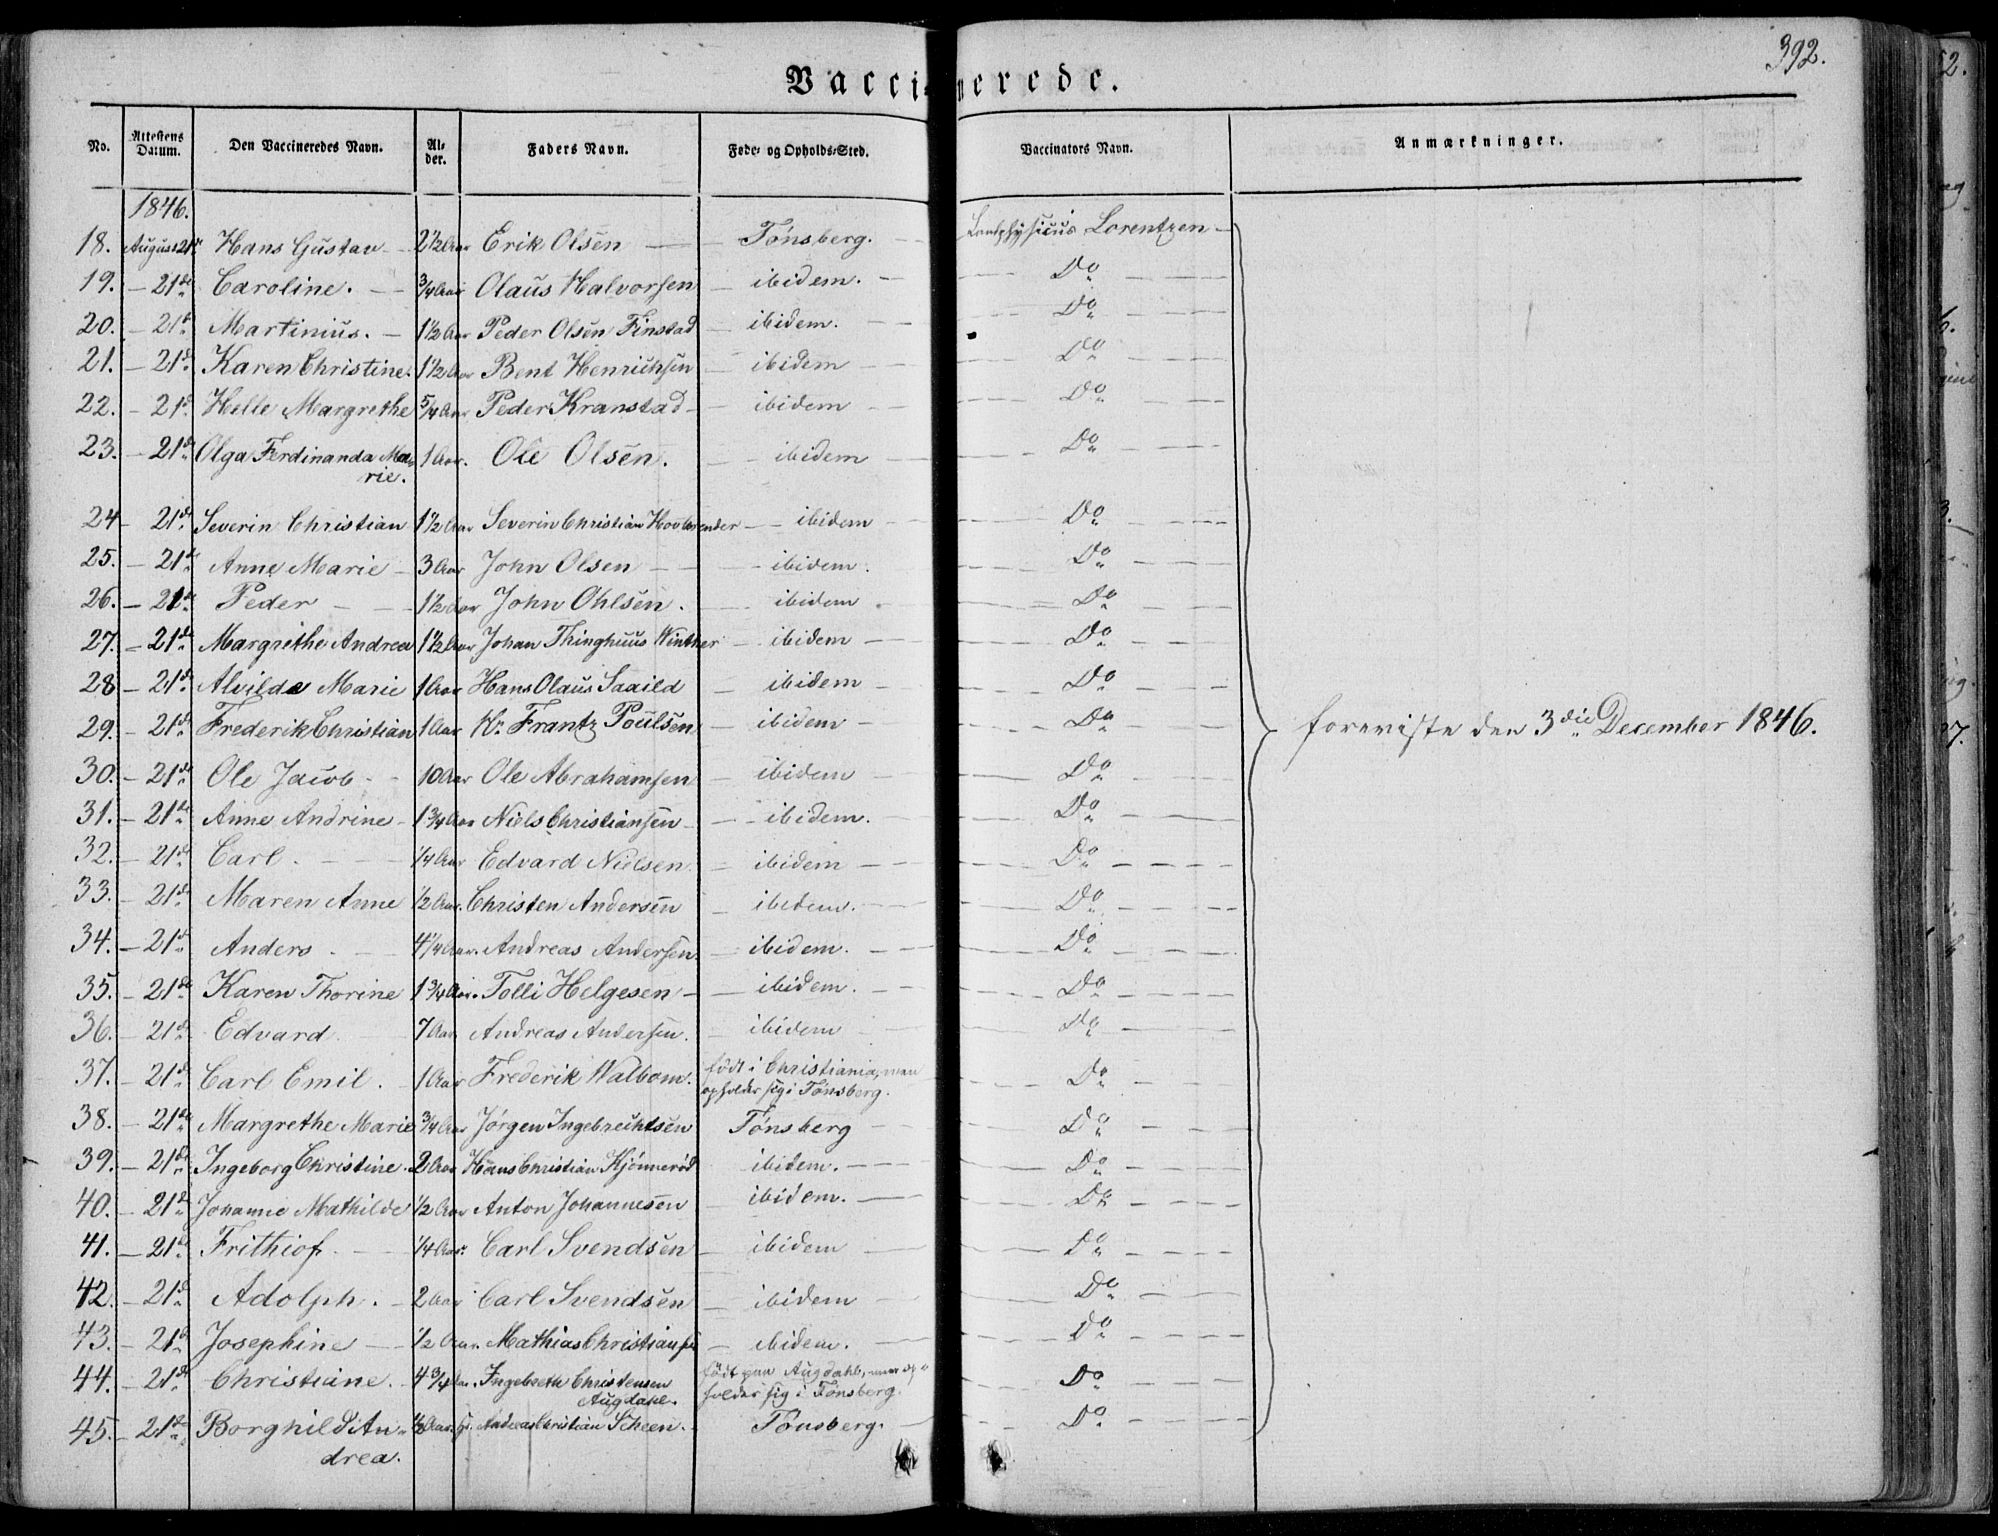 392.
Vaccinerede.
No. Attestens Datum. Den Vaccineredes Navn. Alder. Faders Navn. Føde- og Opholds-Sted. Vaccinators Navn. Anmærkninger.
1846.
18. August 21de Hans Gustav 2 1/2 Aar Erik Olsen Tønsberg. Landphysicus Lorentzen
19. 21de Caroline. 3/4 Aar Olaus Halvorsen ibidem. Do
20. 21d Martinius. 1 1/2 Aar Peder Olsen Finstad ibidem. Do
21. 21d Karen Christine. 1 1/2 Aar Bent Henrichsen ibidem Do
22. 21d Helle Margrethe 5/4 Aar Peder Kranstad ibidem Do
23. 21d Olga Ferdinanda Ma- 1 Aar. Ole Olsen. ibidem Do
rie.
24 21d Severin Christian 1 1/2 Aar Severin Christian ibidem Do
25. 21de Anne Marie 3 Aar John Olsen ibidem. Do
26. 21de Peder 1 1/2 Aar John Ohlsen. ibidem Do
27. 21de Margrethe Andrea 1 1/2 Aar Johan Thinghuus Winther ibidem Do
28 21d Alvilde Marie 1 Aar Hans Olaus ibidem Do
29. 21d Frederik Christian 1 Aar Hr Frantz Poulsen ibidem Do foreviste den 3die December 1846.
30. 21de Ole Jacob 10 Aar Ole Abrahamsen ibidem Do
31. 21de Anne Andrine 1 3/4 Aar Niels Christiansen ibidem. Do
32. 21d Carl. 1/4 Aar Edvard Nielsen ibidem Do
33. 21d Maren Anne 1/2 Aar. Christen Andersen ibidem. Do
34. 21d Anders 4 1/4 Aar. Andreas Andersen ibidem. Do
35. 21de Karen Thorine 1 3/4 Aar. Tolli Helgesen ibidem. Do
36. 21d Edvard 7 Aar Andreas Andersen. ibidem Do
37. 21d Carl Emil. 1 Aar Frederik Walbom. født i Christiania, men Do
opholder sig i Tønsberg.
38. 21de Margrethe Marie 3/4 Aar Jørgen Ingebrechtsen Tønsberg Do
39. 21d Ingeborg Christine 2 Aar Hans Christian Kjønnerød ibidem. Do
40. 21d Johanne Mathilde 1/2 Aar Anton Johannesen ibidem. Do
41. 21d Frithiof 1/4 Aar. Carl Svendsen ibidem Do
42. 21d Adolph. 2 Aar Carl Svendsen ibidem Do
43. 21d Josephine 1/2 Aar. Mathias Christiansen ibidem. Do
44. 21d Christiane. 4 3/4 Aar. Ingebreth Christensen født paa Augdahl, men op- Do
Augdahl. holder sig i Tønsberg.
45. 21de Borghild An- 1/2 Aar. Andreas Christian Scheen. Tønsberg. Do
drea.